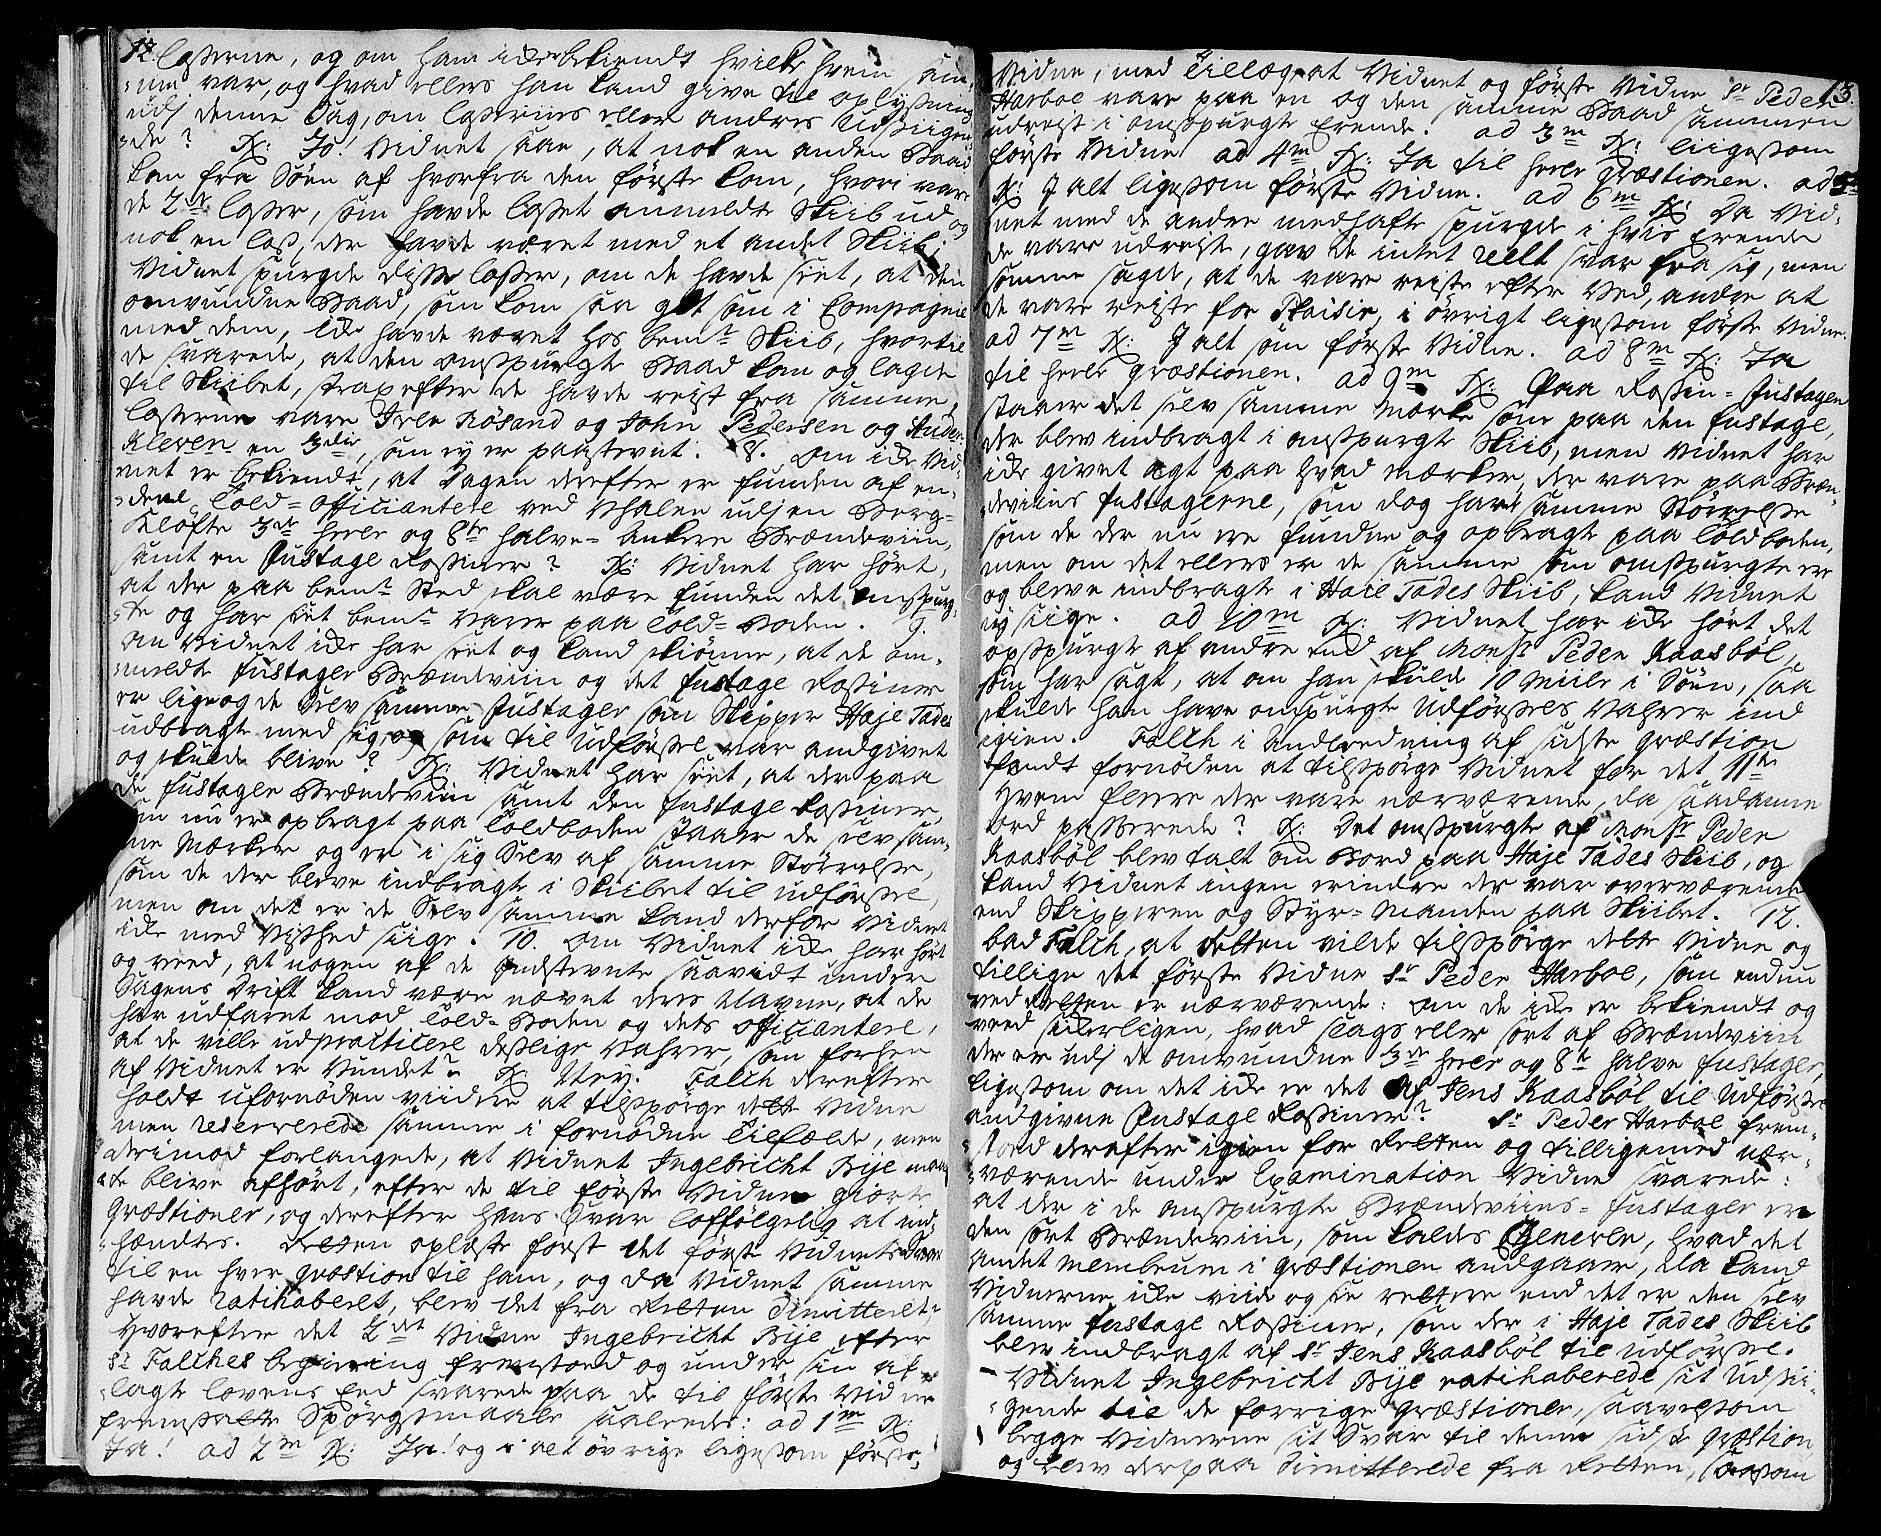 12.
losserne, og om ham icke bekiendt hvilke hvem sam-
-me var, og hvad ellers han kand give til oplysning
udj denne Sag, om lossernes eller andres Udsiigen-
-de? Rx: Jo! Vidnet saae, at nok en anden Baad
kom fra Søen af hvorfra den første kom, hvori vare
de 2de losser, som havde losset anmeldte Skiib ud og
nok en loss, der havde været med et andet Skiib.
Vidnet spurgde disse losser, om de havde seet, at den
omvundne Baad, som kom saa got som i Compagnie
med dem, icke havde været hos bemte Skiib, hvortil
de svarede, at den omspurgte Baad kom og lagde
til Skibet, strax efter de havde reist fra samme,
losserne vare Iver Røsand og John Pedersen og Anders
Kleven en 3die, som ey er paastevnt. 8. Om icke Vid-
net er bekiendt, at Dagen derefter er funden af en-
-deel Told-officiantere ved Hvalen udj en Berg-
Kløfte 3de heele og 8te halve-Ankere Brændeviin,
samt en Fustage Rosiner? Rx: Vidnet har hørt,
at der paa bemte Sted skal være funden det omspurg-
-te og har seet bemte Varer paa Told-Boden. 9.
Om Vidnet icke har seet og kand skiønne, at de om-
-meldte fustager Brændeviin og det fustage Rosiner
er lige og de selv samme Fustager som Skipper Haje Tades
udbragte med sig, og som til Udførsel var andgivet
og skulde blive? Rx: Vidnet har seet, at der paa
de fustager Brændeviin samt den fustage Rosiner,
som nu er opbragt paa Toldboden staaer de selv sam-
-me Mærker og er i sig Selv af samme Størrelse,
som de der bleve indbragte i Skibet til udførsel,
men om det er de Selv samme kand derfor Vidnet
icke med Vished siige. 10. Om Vidnet icke har hørt
og veed, at nogen af de Indstevnte saavidt under
Sagens Drift kand være nævnt deres Navne, at de
har udfaret mod Told-Boden og dets officiantere,
at de ville udpracticere deslige Vahrer, som forhen
af Vidnet er Vundet? Rx: Ney. Falch derefter
holdt ufornøden viidere at tilspørge dette Vidne
men reserverede samme i fornødne Tilfælde, men
derimod forlangede, at Vidnet Ingebricht Bije maa-
-tte blive afhørt, efter de til første Vidne giorte
Qræstioner, og derefter hans Svar lofføgelig at ind-
-hændtes. Retten oplæste først det første Vidnets Svar
til en hver Qræstion til ham, og da Vidnet samme
havde ratihaberet, blev det fra Retten dimitteret,
Hvorefter det 2det Vidne Ingebricht Bije efter
Sr Falches begiering fremstoed og under sin af-
-lagte lovens Eed svarede paa de til første Vidne
fremsatte Spørgsmaale saalede: ad 1m Rx:
Ja! ad 2m Rx: Ja. og i alt øvrige ligesom første
13.
Vidne, med Tillæg at Vidnet og første Vidne Sr Peder
Harboe vare paa en og den samme Baad sammen
udreist i omspurgte Erende. ad 3m Rx: liigesom
første Vidne. ad 4m Rx: Ja til heele Qræstionen. ad 5m
Rx: I alt ligesom første Vidne. ad 6m Rx: Da Vid-
net med de andre medhafte spurgde i hvis Erende
de vare udreiste, gav de intet reelt svar fra sig, men
somme sagde, at de vare reiste efter Ved, andre at
de vare reiste for Plaisir, i øvrigt ligesom første Vidne.
ad 7m Rx: I alt som første Vidne. ad 8m Rx: Ja
til heele Qræstionen. ad 9m Rx: Paa Rosin-Fustagen
staaer det selv samme Mærke som paa den fustage,
der blev indbragt i omspurgte Skiib, men Vidnet har
icke givet agt paa hvad Mærker, der vare paa Bræn-
-deviins fustagerne, som dog har samme Størrelse
som de der nu ere fundne og opbragte paa Toldboden,
men om det ellers er de samme som omspurgte ere
og bleve indbragte i Haie Tades Skiib, kand Vidnet
ey siige. ad 10m Rx: Vidnet har icke hørt det
opspurgte af andre end af Monsr Peder Kaasbøl,
som har sagt, at om han skulde 10 Miile i Søen, saa
skulde han have omspurgte Udførsels Vahrer ind
igien. Falch i Andleedning af sidste Qræstion
fandt fornøden at tilspørge Vidnet for det 11te
Hvem fleere der vare nærværende, da saadanne
ord passerede? Rx: Det omspurgte af Monsr Peder
Kaasbøl blev talt om Bord paa Haje Tades Skiib, og
kand Vidnet ingen erindre der var overværende
end Skipperen og Styr-Manden paa Skibet. 12.
bad Falch, at Retten vilde tilspørge dette Vidne og
tillige det første Vidne Sr Peder Harboe, som endnu
ved Retten er nærværende: om de icke er bekiendt og
veed sikkerligen, hvad slags eller sort af Brændeviin
der er udj de omvundne 3de heele og 8te halve fustager,
ligesom om det icke er det af Jens Kaasbøl til Udførsel
andgivne Fustage Rosiner? Sr Peder Harboe frem-
-stoed derefter igien for Retten og tilligemed nær-
-værende under Examination Vidne svarede:
at der i de omspurgte Brændeviins-fustager ere
den sort Brændeviin, som kaldes Genever, hvad det
andet membrum i Qræstionen andgaaer, da kand
Vidnerne icke viide og see rettere end det er den selv
samme fustage Rosiner, som der i Haje Tades Skiib
blev indbragt af Sr Jens Kaasbøl til udførsel.
Vidnet Ingebricht Bije ratihaberede sit Udsii-
gende til de forrige Qræstioner, saavelsom
begge Vidnerne sit Svar til denne sidste Qræstion
og blev derpaa dimitterede fra Retten, saasom